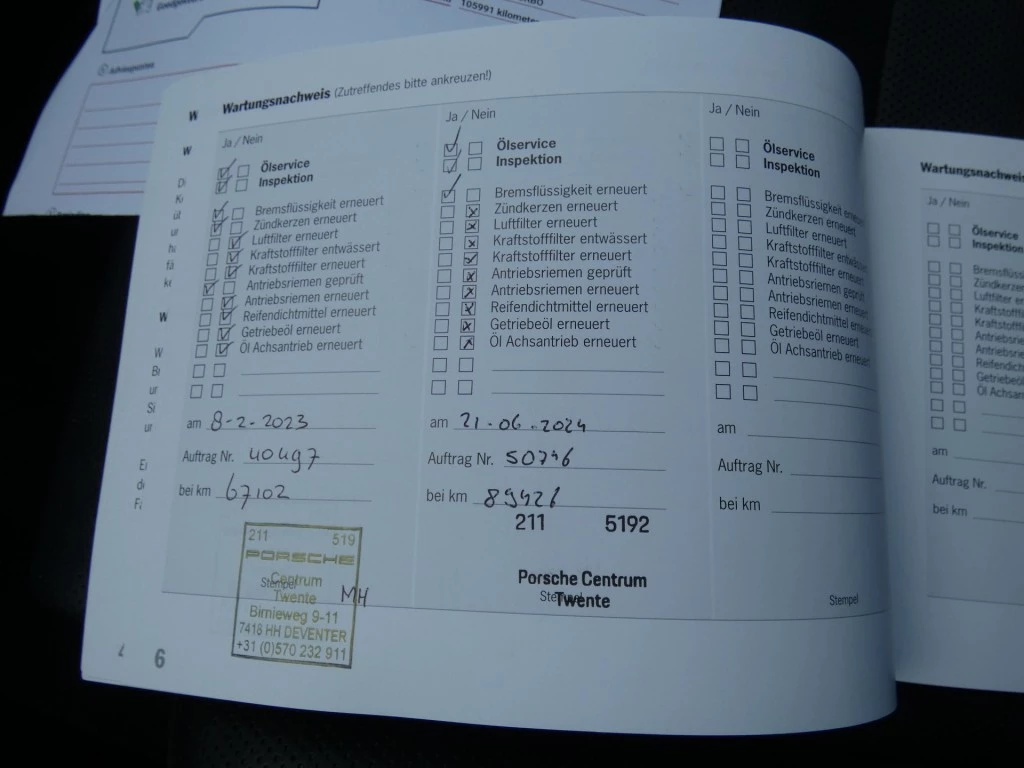 105991 kilomete
Adviesporsche
Wartungsnachweis (Zutreffendes bitte ankreuzen!)
Ja / Nein
Ölservice
Inspektion
Bremsflüssigkeit erneuert
Zündkerzen erneuert
Luftfilter erneuert
Kraftstofffilter entwässert
Kraftstofffilter erneuert
Antriebsriemen geprüft
Antriebsriemen erneuert
Reifendichtmittel erneuert
Getriebeöl erneuert
Öl Achsantrieb erneuert
am 8-2-2023
Auftrag Nr. 40497
bei km 67102
211 519
PORSCHE
Centrum
Stempel
Twente
MH
Birnieweg 9-11
7418 HH DEVENTER
+31 (0)570 232 911
6
Ja / Nein
Ölservice
Inspektion
Bremsflüssigkeit erneuert
Zündkerzen erneuert
Luftfilter erneuert
Kraftstofffilter entwässert
Kraftstofffilter erneuert
Antriebsriemen geprüft
Antriebsriemen erneuert
Reifendichtmittel erneuert
Getriebeöl erneuert
Öl Achsantrieb erneuert
am 21-06-2024
Auftrag Nr. 50746
bei km
211 5192
Porsche Centrum
Twente
Ja / Nein
Ölservice
Inspektion
Bremsflüssigkeit erneuert
Zündkerzen erneuert
Luftfilter erneuert
Kraftstofffilter entwässert
Kraftstofffilter erneuert
Antriebsriemen geprüft
Antriebsriemen erneuert
Reifendichtmittel erneuert
Getriebeöl erneuert
Öl Achsantrieb erneuert
am
Auftrag Nr.
bei km
Stempel
Wartungsnachweis
Ja / Nein
Ölservice
Inspektion
Bremsflüssi
Zündkerze
Luftfilter e
Kraftstoff
Kraftstoff
Antriebsri
Antriebsri
Reifendic
Getriebeö
Öl Achsan
am
Auftrag Nr.
bei km